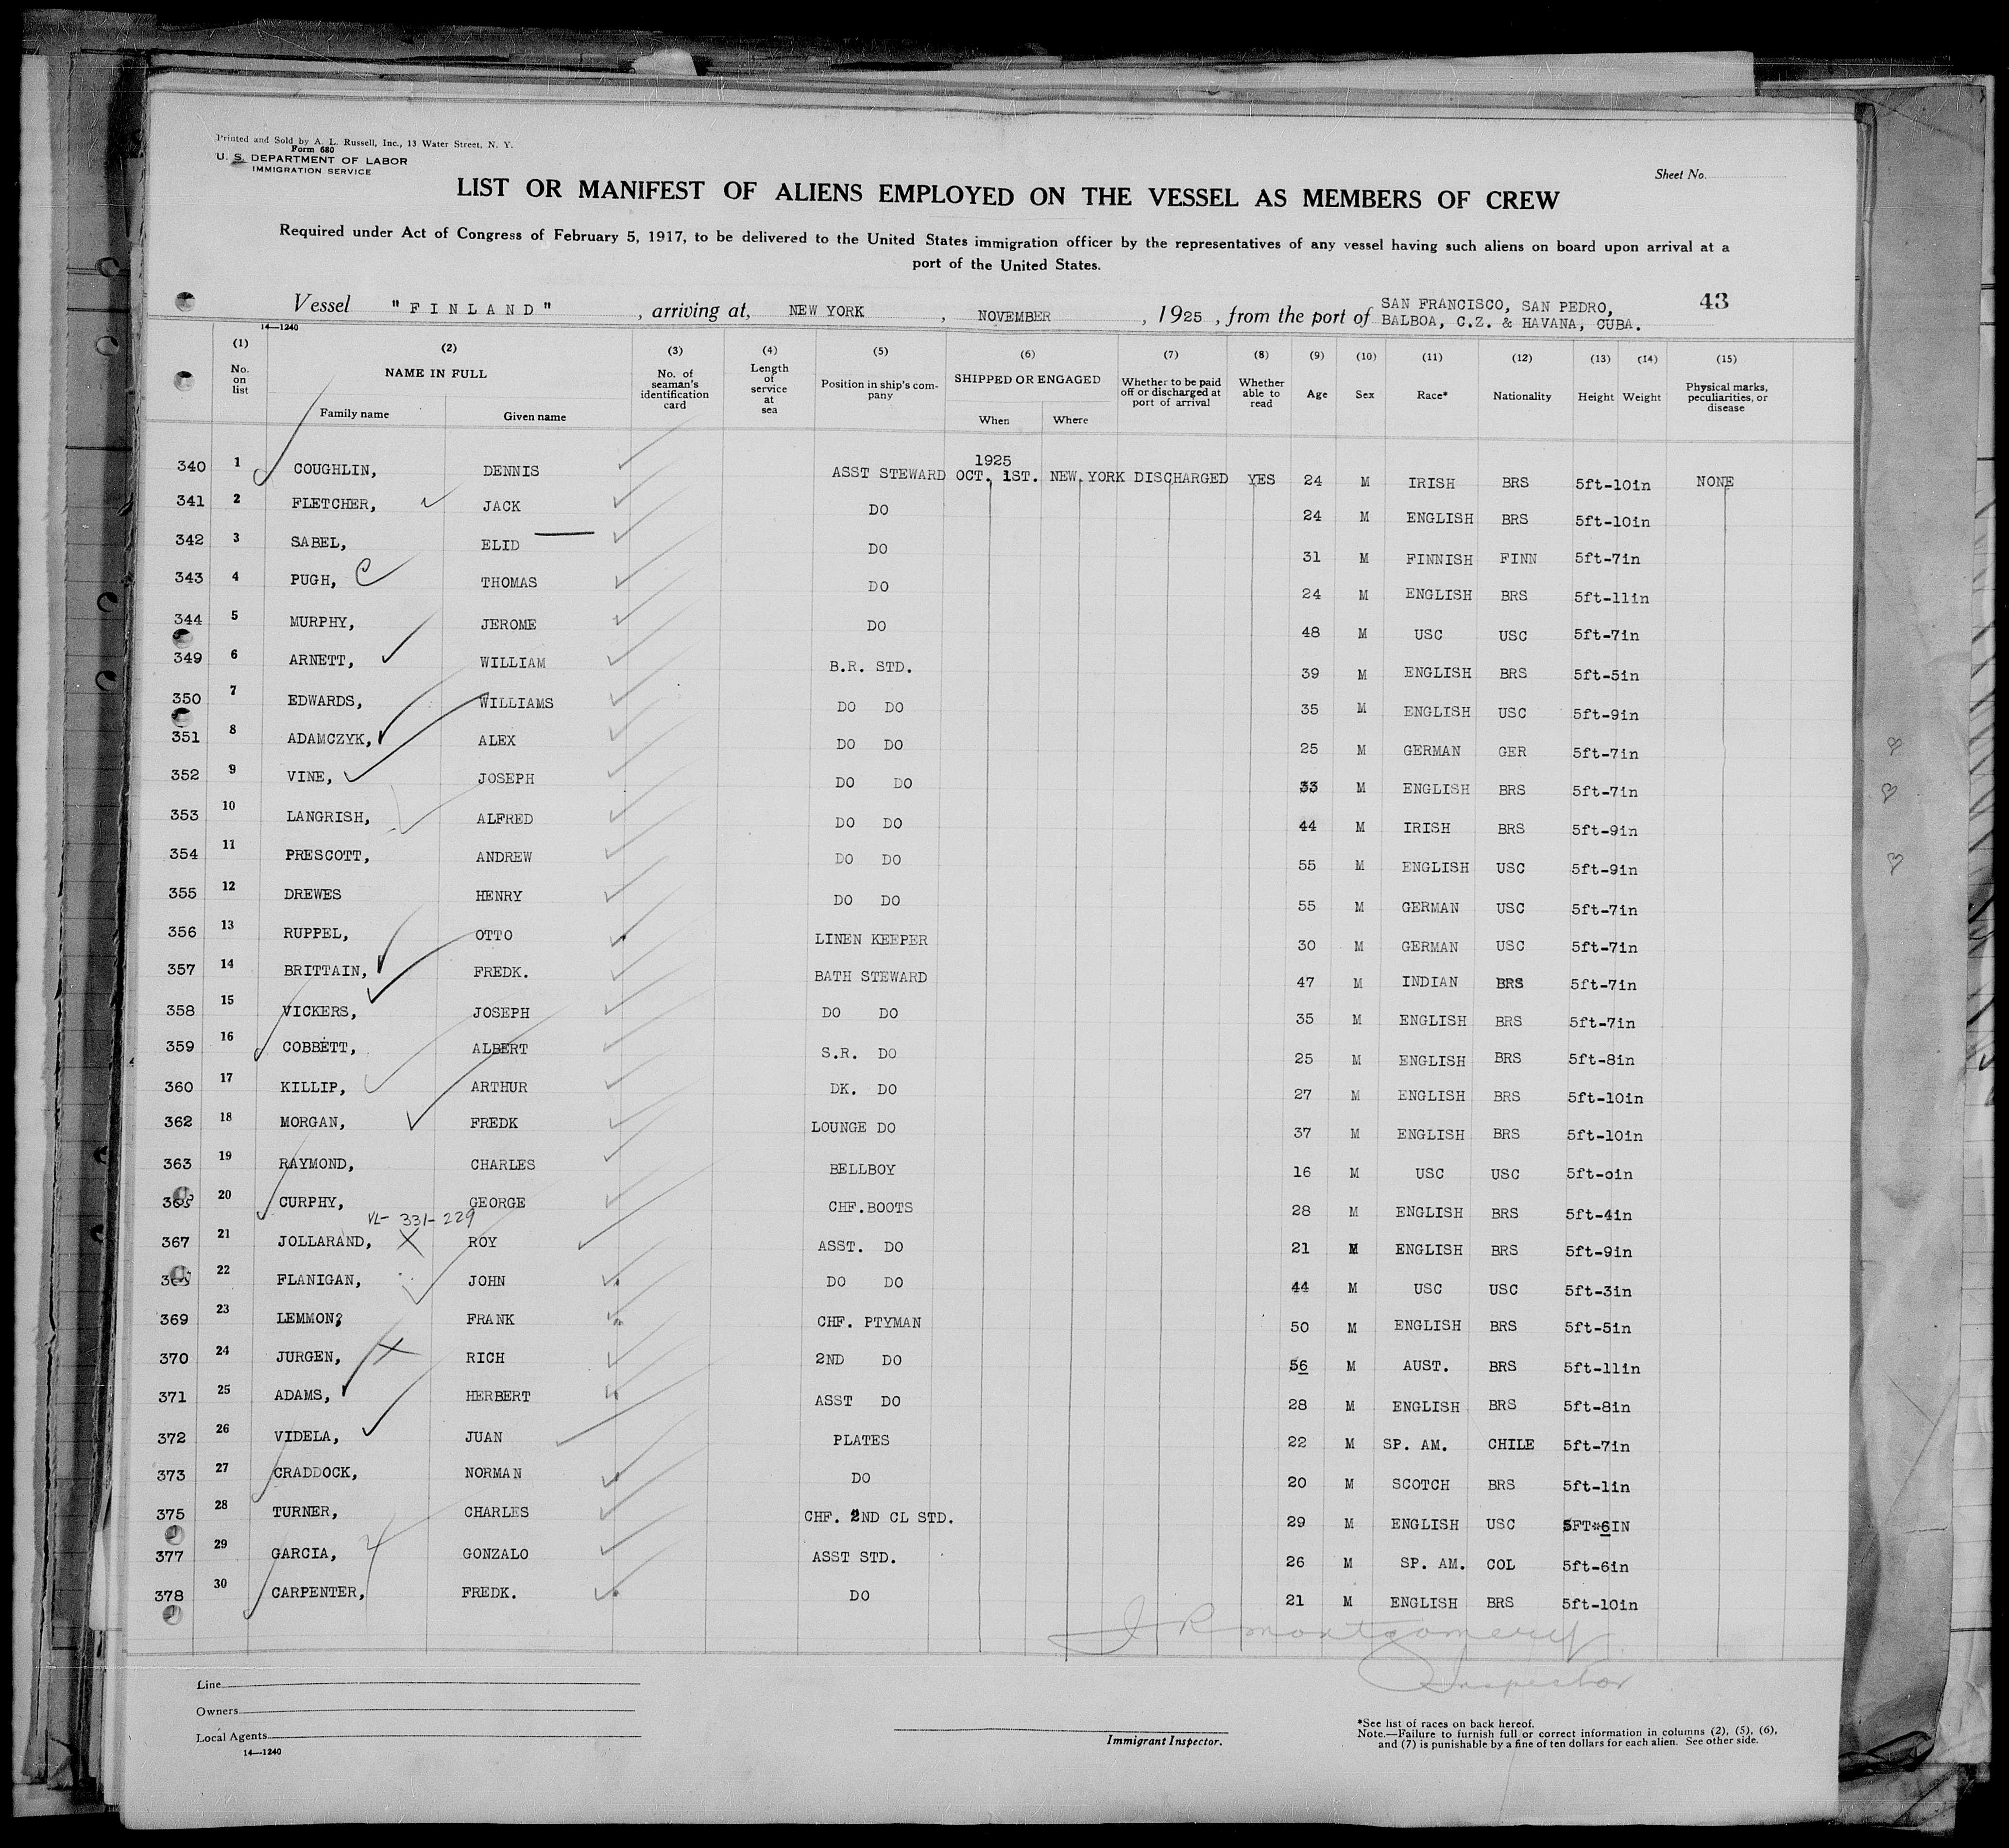 Printed and Sold by A. L. Russell, Inc., 13 Water Street, N. Y.
Form 680
U. S. DEPARTMENT OF LABOR
IMMIGRATION SERVICE
Sheet No.
LIST OR MANIFEST OF ALIENS EMPLOYED ON THE VESSEL AS MEMBERS OF CREW
Required under Act of Congress of February 5, 1917, to be delivered to the United States immigration officer by the representatives of any vessel having such aliens on board upon arrival at a
port of the United States.
Vessel "FINLAND", arriving at, NEW YORK, NOVEMBER, 1925, from the port of SAN FRANCISCO, SAN PEDRO, BALBOA, C.Z. & HAVANA, CUBA. 43
14—1240
(1) (2) (3) (4) (5) (6) (7) (8) (9) (10) (11) (12) (13) (14) (15)
No. on list NAME IN FULL Family name Given name No. of seaman's identification card Length of service at sea Position in ship's company SHIPPED OR ENGAGED When Where Whether to be paid off or discharged at port of arrival Whether able to read Age Sex Race* Nationality Height Weight Physical marks, peculiarities, or disease
1925
340 1 COUGHLIN, DENNIS ASST STEWARD OCT. 1ST. NEW YORK DISCHARGED YES 24 M IRISH BRS 5ft-10in NONE
341 2 FLETCHER, JACK DO 24 M ENGLISH BRS 5ft-10in
342 3 SABEL, ELID DO 31 M FINNISH FINN 5ft-7in
343 4 PUGH, THOMAS DO 24 M ENGLISH BRS 5ft-11in
344 5 MURPHY, JEROME DO 48 M USC USC 5ft-7in
349 6 ARNETT, WILLIAM B.R. STD. 39 M ENGLISH BRS 5ft-5in
350 7 EDWARDS, WILLIAMS DO DO 35 M ENGLISH USC 5ft-9in
351 8 ADAMCZYK, ALEX DO DO 25 M GERMAN GER 5ft-7in
352 9 VINE, JOSEPH DO DO 33 M ENGLISH BRS 5ft-7in
353 10 LANGRISH, ALFRED DO DO 44 M IRISH BRS 5ft-9in
354 11 PRESCOTT, ANDREW DO DO 55 M ENGLISH USC 5ft-9in
355 12 DREWES HENRY DO DO 55 M GERMAN USC 5ft-7in
356 13 RUPPEL, OTTO LINEN KEEPER 30 M GERMAN USC 5ft-7in
357 14 BRITTAIN, FREDK. BATH STEWARD 47 M INDIAN BRS 5ft-7in
358 15 VICKERS, JOSEPH DO DO 35 M ENGLISH BRS 5ft-7in
359 16 COBBETT, ALBERT S.R. DO 25 M ENGLISH BRS 5ft-8in
360 17 KILLIP, ARTHUR DK. DO 27 M ENGLISH BRS 5ft-10in
362 18 MORGAN, FREDK LOUNGE DO 37 M ENGLISH BRS 5ft-10in
363 19 RAYMOND, CHARLES BELLBOY 16 M USC USC 5ft-oin
20 CURPHY, GEORGE CHF.BOOTS 28 M ENGLISH BRS 5ft-4in
VL- 331-229
367 21 JOLLARAND, X ROY ASST. DO 21 M ENGLISH BRS 5ft-9in
22 FLANIGAN, JOHN DO DO 44 M USC USC 5ft-3in
369 23 LEMMON? FRANK CHF. PTYMAN 50 M ENGLISH BRS 5ft-5in
370 24 JURGEN, X RICH 2ND DO 56 M AUST. BRS 5ft-11in
371 25 ADAMS, HERBERT ASST DO 28 M ENGLISH BRS 5ft-8in
372 26 VIDELA, JUAN PLATES 22 M SP. AM. CHILE 5ft-7in
373 27 CRADDOCK, NORMAN DO 20 M SCOTCH BRS 5ft-1in
375 28 TURNER, CHARLES CHF. 2ND CL STD. 29 M ENGLISH USC 5FT*6IN
377 29 GARCIA, GONZALO ASST STD. 26 M SP. AM. COL 5ft-6in
378 30 CARPENTER, FREDK. DO 21 M ENGLISH BRS 5ft-10in
J R Montgomery
Inspector
Line
Owners
Local Agents
14—1240
Immigrant Inspector.
*See list of races on back hereof.
Note.—Failure to furnish full or correct information in columns (2), (5), (6),
and (7) is punishable by a fine of ten dollars for each alien. See other side.